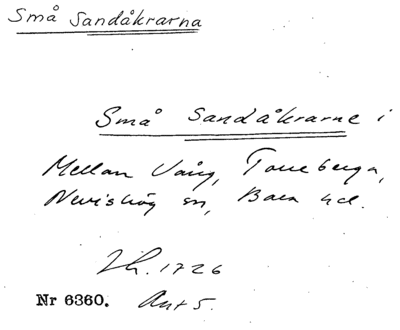 Små Sandåkrarna
Små Sandåkrarne i
Mellan Vång, Toreberga,
Nevishög sn, Bara hd.
Lh. 1726
Nr 6360. Akt 5.